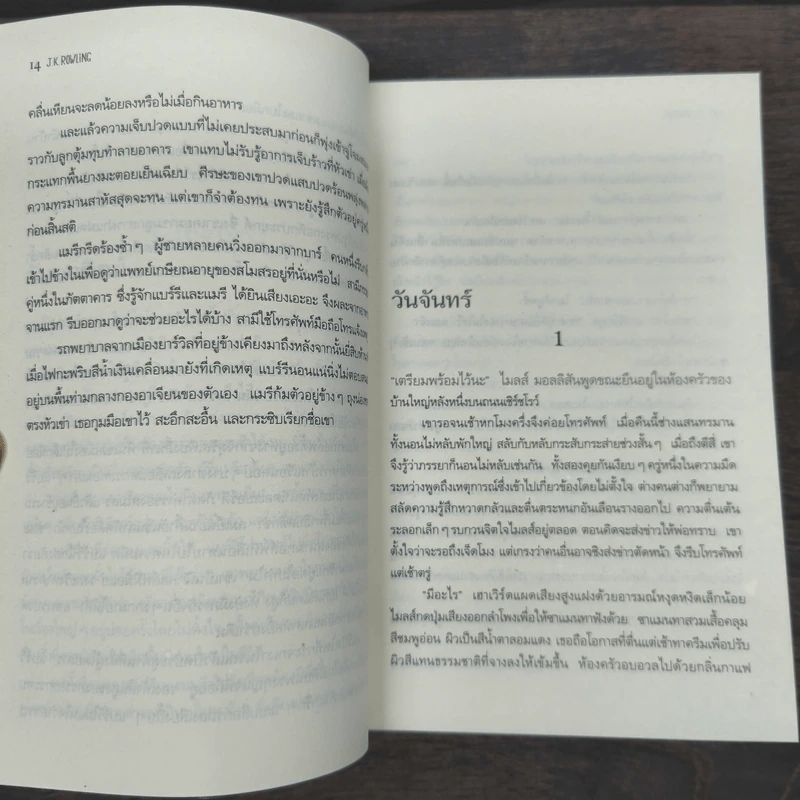 14 J.K. ROWLING
คลื่นเหียนจะลดน้อยลงหรือไม่เมื่อกินอาหาร
และแล้วความเจ็บปวดแบบที่ไม่เคยประสบมาก่อนก็พุ่งเข้าจู่โจม
ราวกับลูกตุ้มทุบทำลายอาคาร เขาแทบไม่รับรู้อาการเจ็บร้าวที่หัวเข่า
กระแทกพื้นยางมะตอยเย็นเฉียบ ศีรษะของเขาปวดแสบปวดร้อน
ความทรมานสาหัสสุดจะทน แต่เขาก็จำต้องทน เพราะยังรู้สึกตัวอยู่
ก่อนสิ้นสติ
แมรีกรีดร้องซ้ำๆ ผู้ชายหลายคนวิ่งออกมาจากบาร์ คนหนึ่ง
เข้าไปข้างในเพื่อดูว่าแพทย์เกษียณอายุของสโมสรอยู่ที่นั่นหรือไม่
คู่หนึ่งในภัตตาคาร ซึ่งรู้จักแบร์รีและแมรี ได้ยินเสียงเอะอะ จึงผละจาก
จานแรก รีบออกมาดูว่าจะช่วยอะไรได้บ้าง สามีใช้โทรศัพท์มือถือโทร
รถพยาบาลจากเมืองยาร์วิลที่อยู่ข้างเคียงมาถึงหลังจากนั้นยี่สิบห้า
เมื่อไฟกะพริบสีน้ำเงินเคลื่อนมายังที่เกิดเหตุ แบร์รีนอนแน่นิ่งไม่
อยู่บนพื้นท่ามกลางกองอาเจียนของตัวเอง แมรีก้มตัวอยู่ข้างๆ ถุงน่อง
ตรงหัวเข่า เธอกุมมือเขาไว้ สะอึกสะอื้น และกระซิบเรียกชื่อเขา
วันจันทร์
1
“เตรียมพร้อมไว้นะ” ไมลส์ มอลลิสันพูดขณะยืนอยู่ในห้องครัวของ
บ้านใหญ่หลังหนึ่งบนถนนเชิร์ชโรว์
เขารอจนเช้าหกโมงครึ่งจึงค่อยโทรศัพท์ เมื่อคืนนี้ช่างแสนทรมาน
ทั้งนอนไม่หลับพักใหญ่ สลับกับหลับกระสับกระส่ายช่วงสั้นๆ เมื่อถึงตีสี่ เขา
จึงรู้ว่าภรรยาก็นอนไม่หลับเช่นกัน ทั้งสองคุยกันเงียบๆ ครู่หนึ่งในความมืด
ระหว่างพูดถึงเหตุการณ์ซึ่งเข้าไปเกี่ยวข้องโดยไม่ตั้งใจ ต่างคนต่างก็พยายาม
สลัดความรู้สึกหวาดกลัวและตื่นตระหนกอันเลือนรางออกไป ความตื่นเต้น
ระลอกเล็กๆ รบกวนจิตใจไมลส์อยู่ตลอด ตอนคิดจะส่งข่าวให้พ่อทราบ เขา
ตั้งใจว่าจะรอถึงเจ็ดโมง แต่เกรงว่าคนอื่นอาจชิงส่งข่าวตัดหน้า จึงรีบโทรศัพท์
แต่เช้าตรู่
“มีอะไร” เฮาเวิร์ดแผดเสียงสูงแฝงด้วยอารมณ์หงุดหงิดเล็กน้อย
ไมลส์กดปุ่มเสียงออกลำโพงเพื่อให้ซาแมนทาฟังด้วย ซาแมนทาสวมเสื้อคลุม
สีชมพูอ่อน ผิวเป็นสีน้ำตาลอมแดง เธอถือโอกาสที่ตื่นแต่เช้าทาครีมเพื่อปรับ
ผิวสีแทนธรรมชาติที่จางลงให้เข้มขึ้น ห้องครัวอบอวลไปด้วยกลิ่นกาแฟ